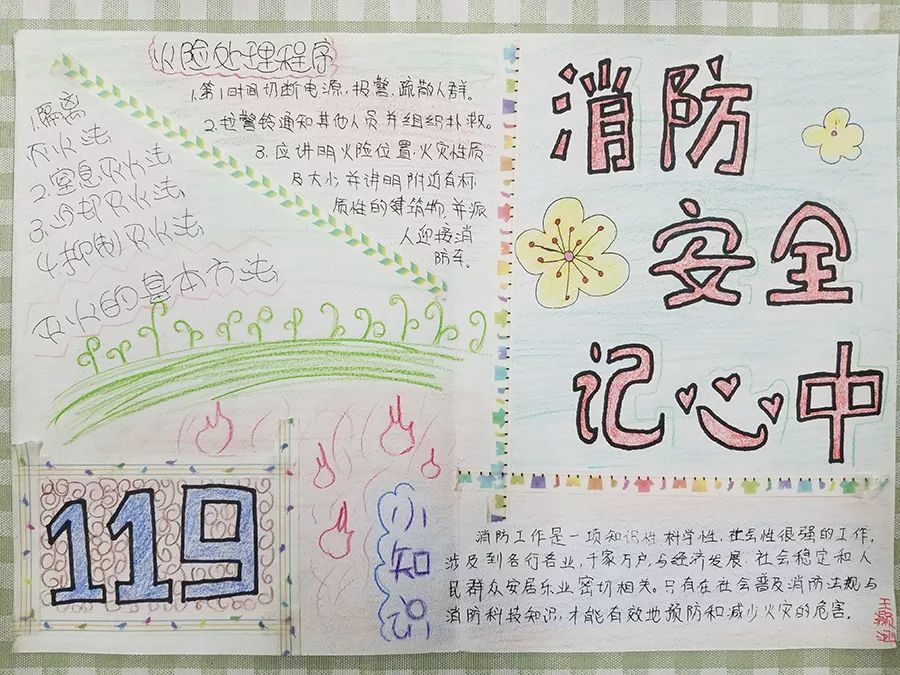 火险处理程序
1.第1时间切断电源,报警,疏散人群。
2.拉警铃通知其他人员并组织扑救。
3.应讲明火险位置,火灾性质
及大小,并讲明附近有标
质性的建筑物,并派
人迎接消
防车。
1.隔离
灭火法
2.窒息灭火法
3.冷却灭火法
4.抑制灭火法
灭火的基本方法
消防
安全
记心中
119
小知识
消防工作是一项知识性科学性,社会性很强的工作,
涉及到各行各业,千家万户,与经济发展,社会稳定和人
民群众安居乐业密切相关。只有在社会普及消防法规与
消防科技知识,才能有效地预防和减少火灾的危害。